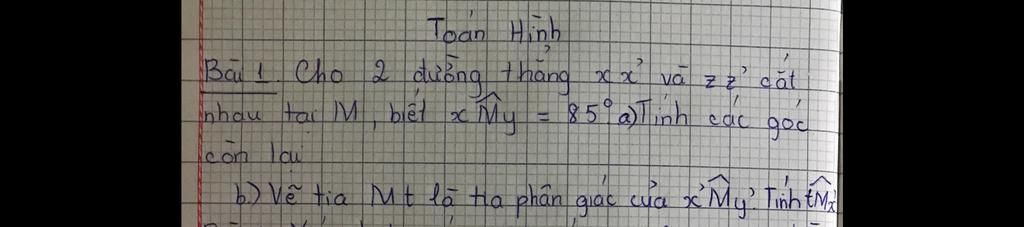 Toán Hình
Bài 1. Cho 2 đường thẳng xx' và zz' cắt
nhau tại M, biết xMy = 85° a) Tính các góc
còn lại
b.) Vẽ tia Mt là tia phân giác của x'My'. Tính tMz'